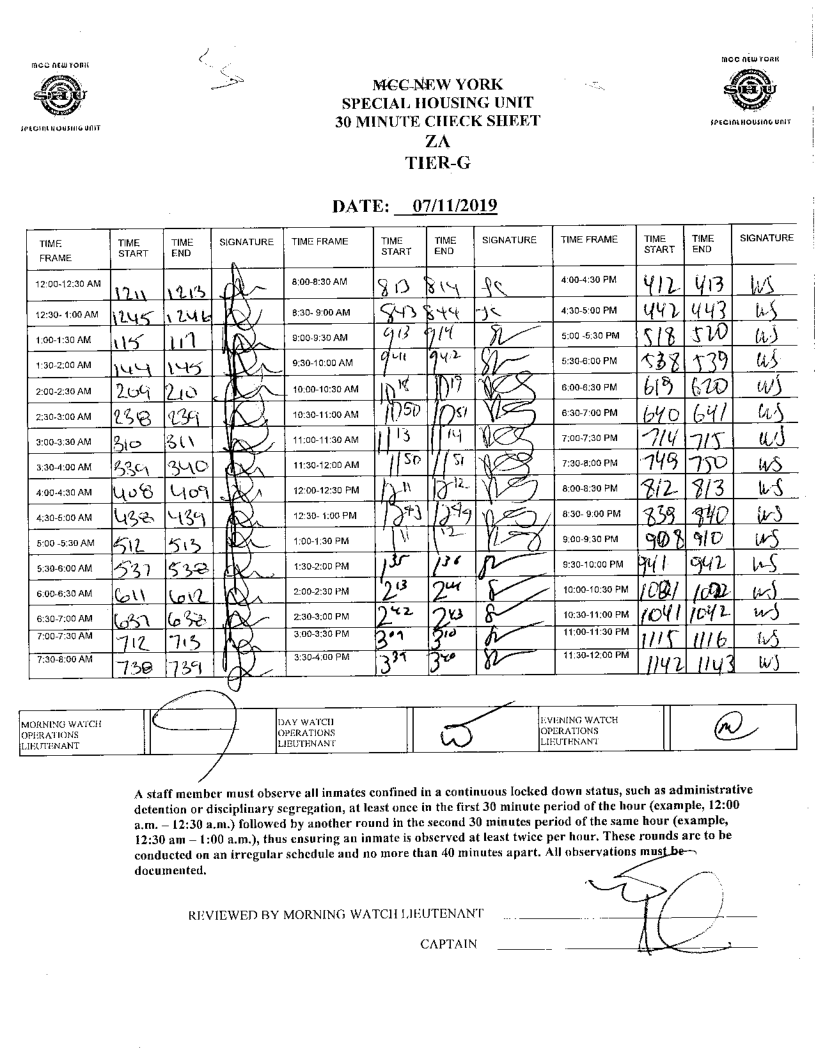 MCC NEW YORK
SHU
SPECIAL HOUSING UNIT
MCC NEW YORK
SHU
SPECIAL HOUSING UNIT
MCC NEW YORK
SPECIAL HOUSING UNIT
30 MINUTE CHECK SHEET
ZA
TIER-G
DATE: 07/11/2019
TIME FRAME TIME START TIME END SIGNATURE TIME FRAME TIME START TIME END SIGNATURE TIME FRAME TIME START TIME END SIGNATURE
12:00-12:30 AM 1211 1213 8:00-8:30 AM 813 814 4:00-4:30 PM 412 413 WS
12:30- 1:00 AM 1245 1246 8:30- 9:00 AM 843 844 4:30-5:00 PM 442 443 WS
1:00-1:30 AM 115 117 9:00-9:30 AM 913 914 5:00 -5:30 PM 518 520 WS
1:30-2:00 AM 144 145 9:30-10:00 AM 941 942 5:30-6:00 PM 538 539 WS
2:00-2:30 AM 209 210 10:00-10:30 AM 1018 1019 6:00-6:30 PM 619 620 WS
2:30-3:00 AM 238 239 10:30-11:00 AM 1050 1051 6:30-7:00 PM 640 641 WS
3:00-3:30 AM 310 311 11:00-11:30 AM 1113 1114 7:00-7:30 PM 714 715 WS
3:30-4:00 AM 339 340 11:30-12:00 AM 1150 1151 7:30-8:00 PM 749 750 WS
4:00-4:30 AM 408 409 12:00-12:30 PM 1211 1212 8:00-8:30 PM 812 813 WS
4:30-5:00 AM 438 439 12:30- 1:00 PM 1243 1244 8:30- 9:00 PM 839 840 WS
5:00 -5:30 AM 512 513 1:00-1:30 PM 111 112 9:00-9:30 PM 908 910 WS
5:30-6:00 AM 537 538 1:30-2:00 PM 135 136 9:30-10:00 PM 941 942 WS
6:00-6:30 AM 611 612 2:00-2:30 PM 213 214 10:00-10:30 PM WS
6:30-7:00 AM 637 638 2:30-3:00 PM 242 243 10:30-11:00 PM 1041 1042 WS
7:00-7:30 AM 712 713 3:00-3:30 PM 309 310 11:00-11:30 PM 1115 1116 WS
7:30-8:00 AM 738 739 3:30-4:00 PM 339 340 11:30-12:00 PM 1142 1143 WS
MORNING WATCH OPERATIONS LIEUTENANT
DAY WATCH OPERATIONS LIEUTENANT
EVENING WATCH OPERATIONS LIEUTENANT
A staff member must observe all inmates confined in a continuous locked down status, such as administrative
detention or disciplinary segregation, at least once in the first 30 minute period of the hour (example, 12:00
a.m. – 12:30 a.m.) followed by another round in the second 30 minutes period of the same hour (example,
12:30 am – 1:00 a.m.), thus ensuring an inmate is observed at least twice per hour. These rounds are to be
conducted on an irregular schedule and no more than 40 minutes apart. All observations must be
documented.
REVIEWED BY MORNING WATCH LIEUTENANT
CAPTAIN